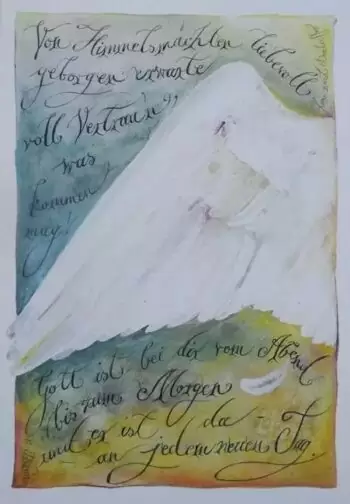 Von Himmelsmächten liebevoll
geborgen erwarte
voll Vertrau'n,
was
kommen
mag!
Gott ist bei dir vom Abend
bis zum Morgen
und er ist da -
an jedem neuen Tag.